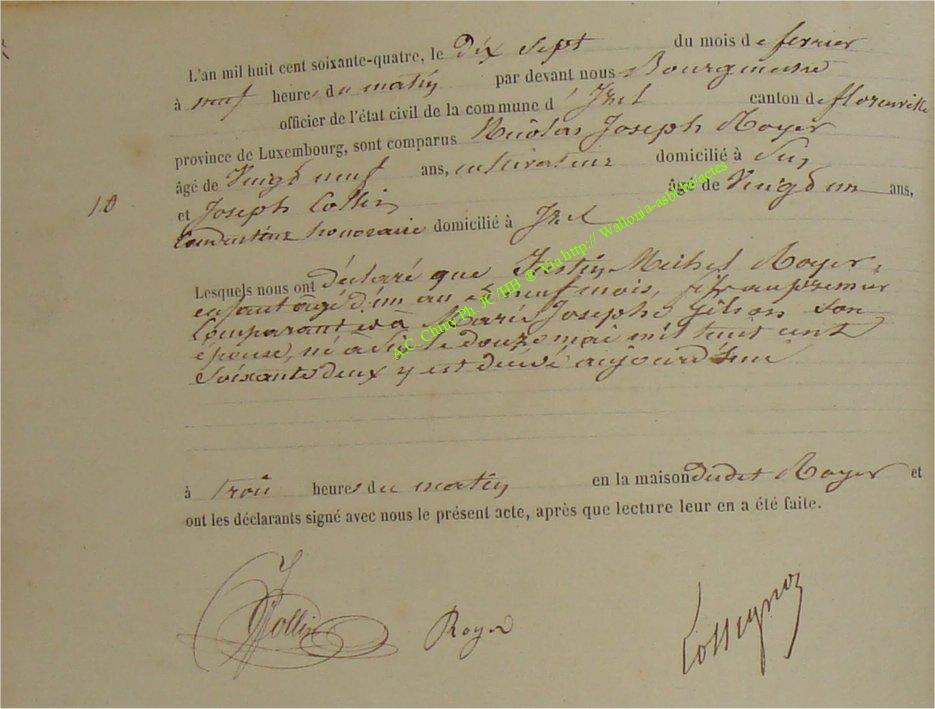 L'an mil huit cent soixante-quatre, le dix sept du mois de fevrier
à neuf heures du matin par devant nous Bourgmestre
officier de l'état civil de la commune d'Izel canton de florenville
province de Luxembourg, sont comparus Nicolas Joseph Royer
âgé de Vingt neuf ans, cultivateur domicilié à
et Joseph Collin âgé de Vingt un ans,
10
honoraire domicilié à Izel
Lesquels nous ont déclaré que Justin Michel Royer
enfant âgé d'un an et neuf mois, fils au premier
Comparant et à Marie Josephe Gilson son
épouse, né à le douze mai mil huit cent
soixante deux y est décédé aujourd'hui
à trois heures du matin en la maison dudit Royer et
ont les déclarants signé avec nous le présent acte, après que lecture leur en a été faite.
JCollin Royer
A.C. Chiny Ph. JC /HB @ Via http:// Wallonia-asbl.be/actes